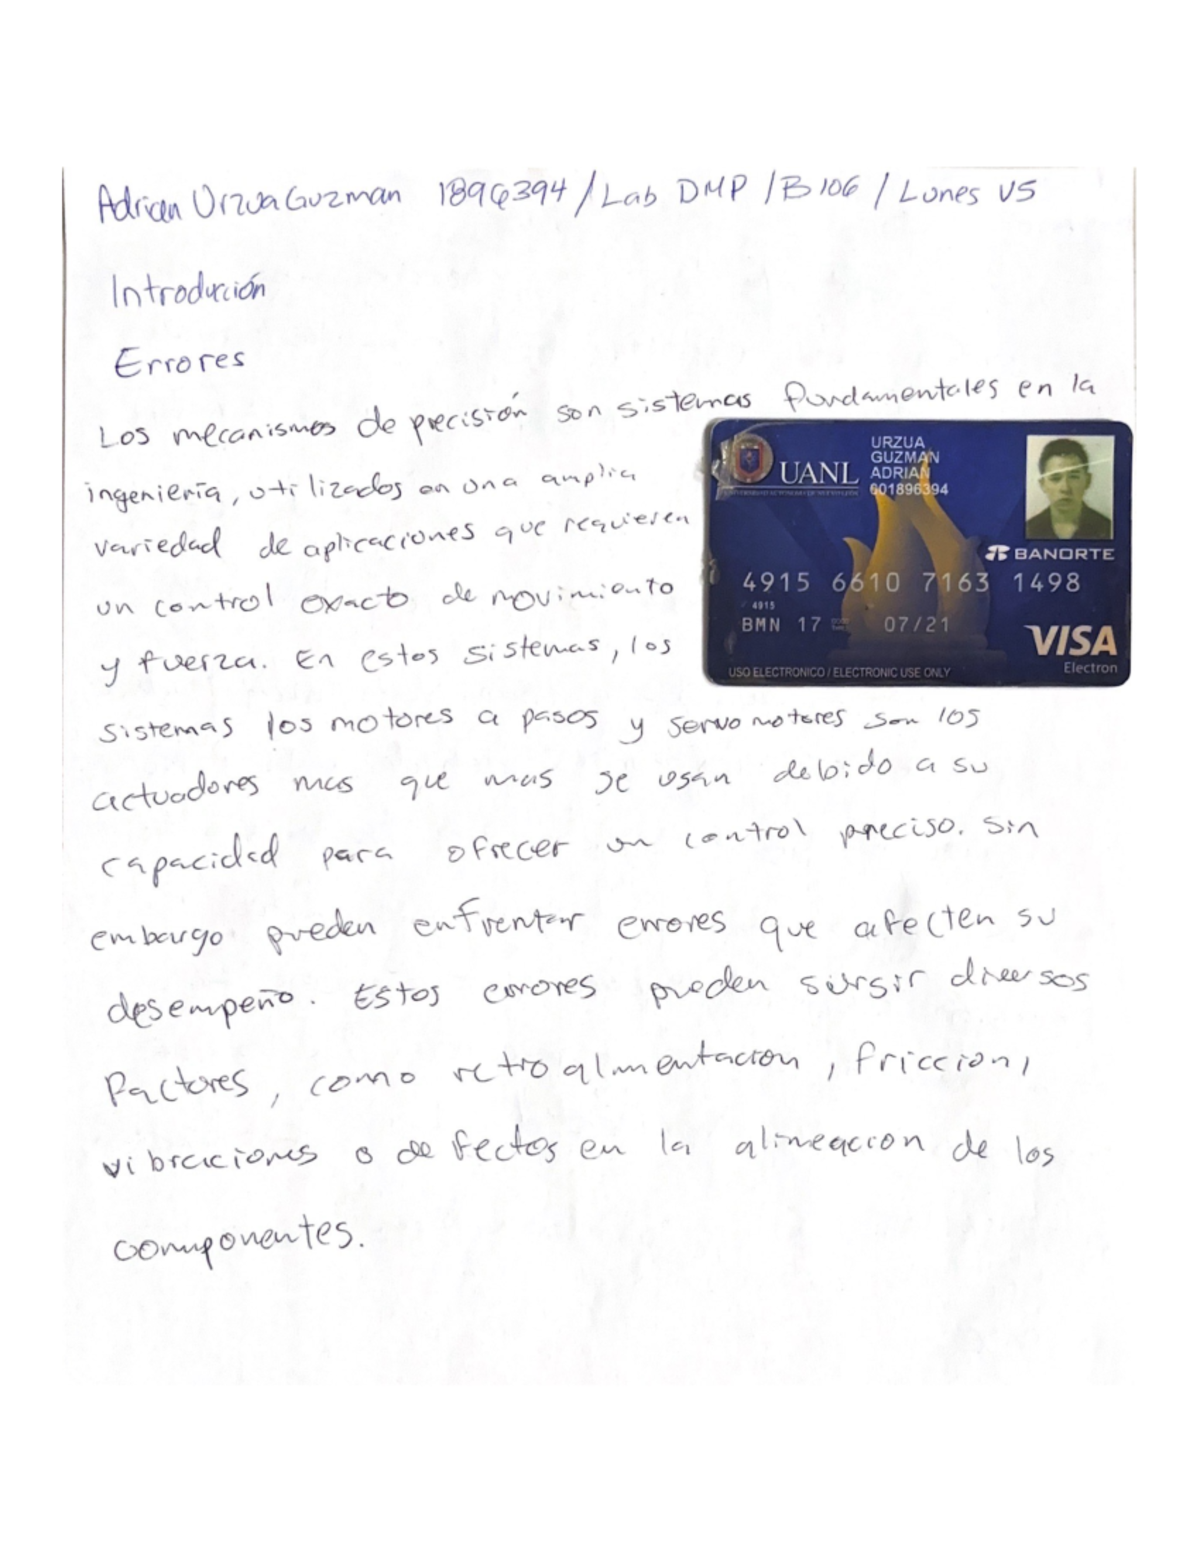 Adrian Urzua Guzman 1896394 / Lab DMP / B106 / Lunes V5
Introducción
Errores
Los mecanismos de precisión son sistemas fundamentales en la
ingenieria, utilizados en una amplia
variedad de aplicaciones que requieren
un control exacto de movimiento
y fuerza. En estos sistemas, los
UANL
URZUA
GUZMAN
ADRIAN
601896394
BANORTE
4915 6610 7163 1498
4915
BMN 17 07/21
VISA
Electron
USO ELECTRONICO / ELECTRONIC USE ONLY
sistemas los motores a pasos y servomotores son los
actuadores mas que mas se usan debido a su
capacidad para ofrecer un control preciso. Sin
embargo pueden enfrentar errores que afecten su
desempeño. Estos errores pueden surgir diversos
factores, como retroalimentacion, friccion,
vibraciones o defectos en la alineacion de los
componentes.